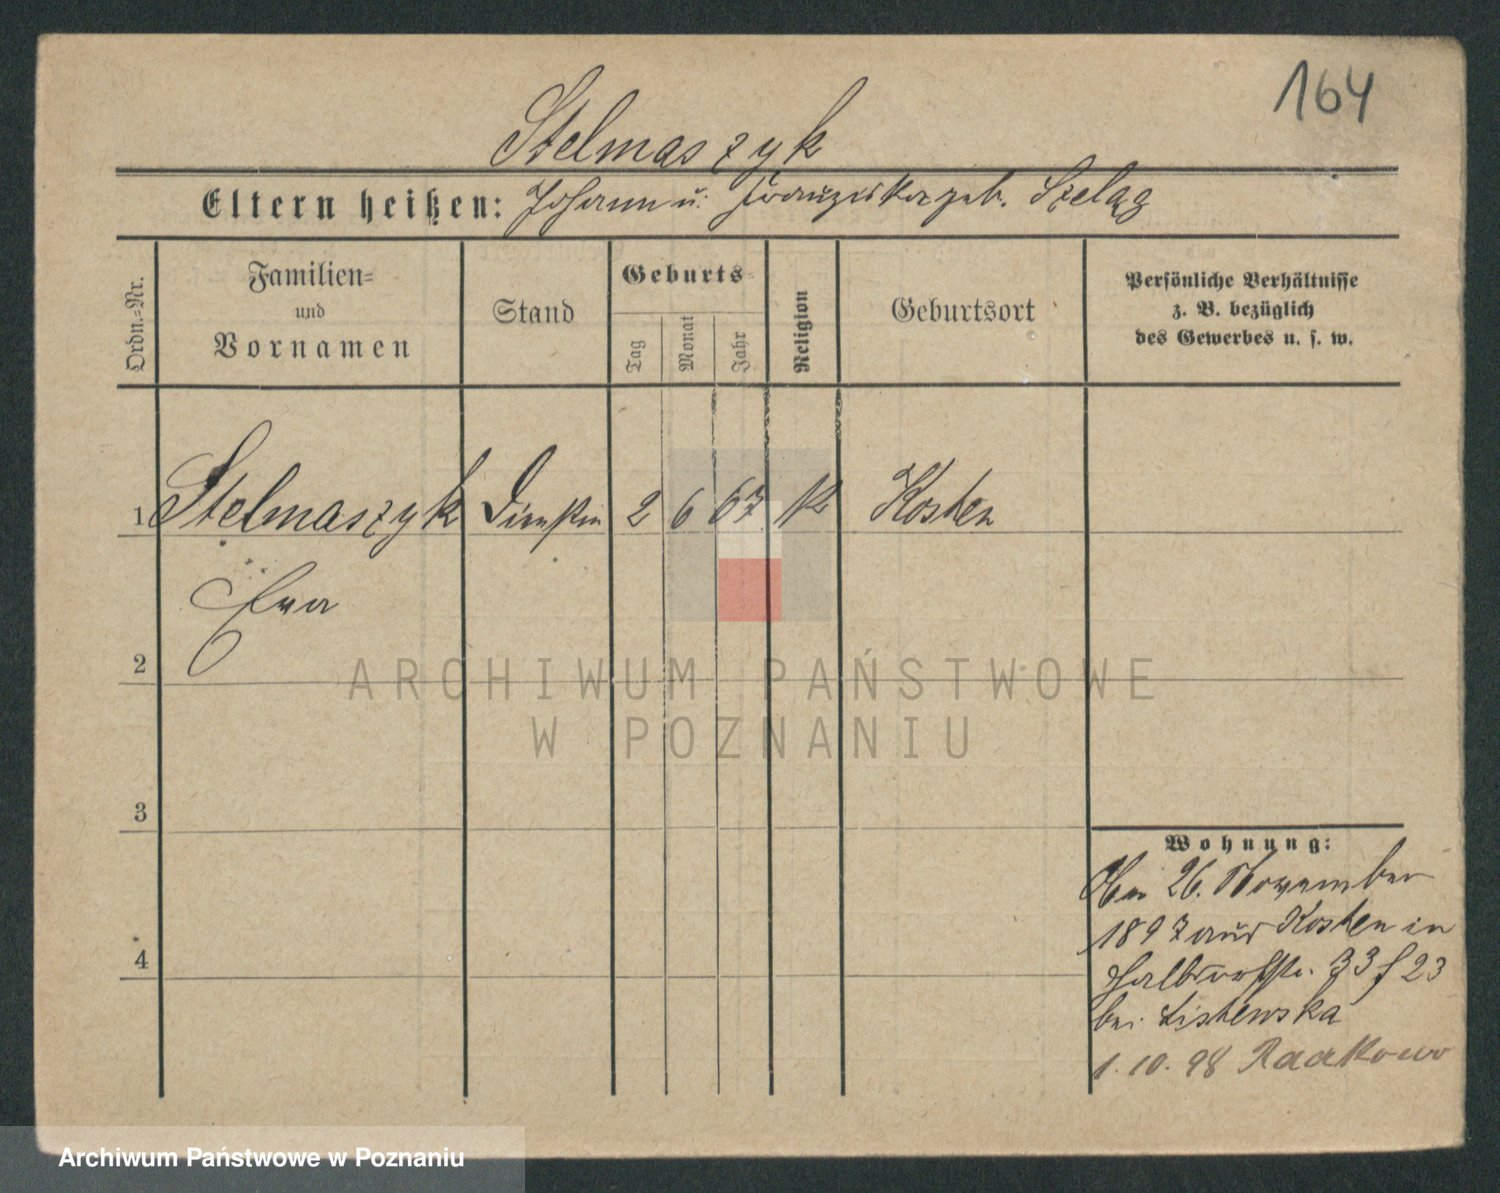 164
Stelmaszyk
Eltern heißen: Johann u. Franziska geb. Szeląg
Ordn.-Nr.
Familien-
und
Vornamen
Stand
Geburts-
Tag
Monat
Jahr
Religion
Geburtsort
Persönliche Verhältnisse
z. B. bezüglich
des Gewerbes u. s. w.
1 Stelmaszyk 2 6 67 K Kosten
Eva
2
3
4
Wohnung:
26. November
1897 aus Kosten in
Halbdorfstr. 33
bei Listewska
1. 10. 98
ARCHIWUM PAŃSTWOWE
W POZNANIU
Archiwum Państwowe w Poznaniu